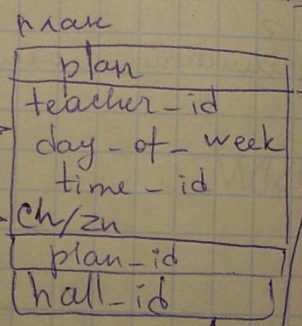 план
plan
teacher_id
day_of_week
time_id
ch/zn
plan_id
hall_id